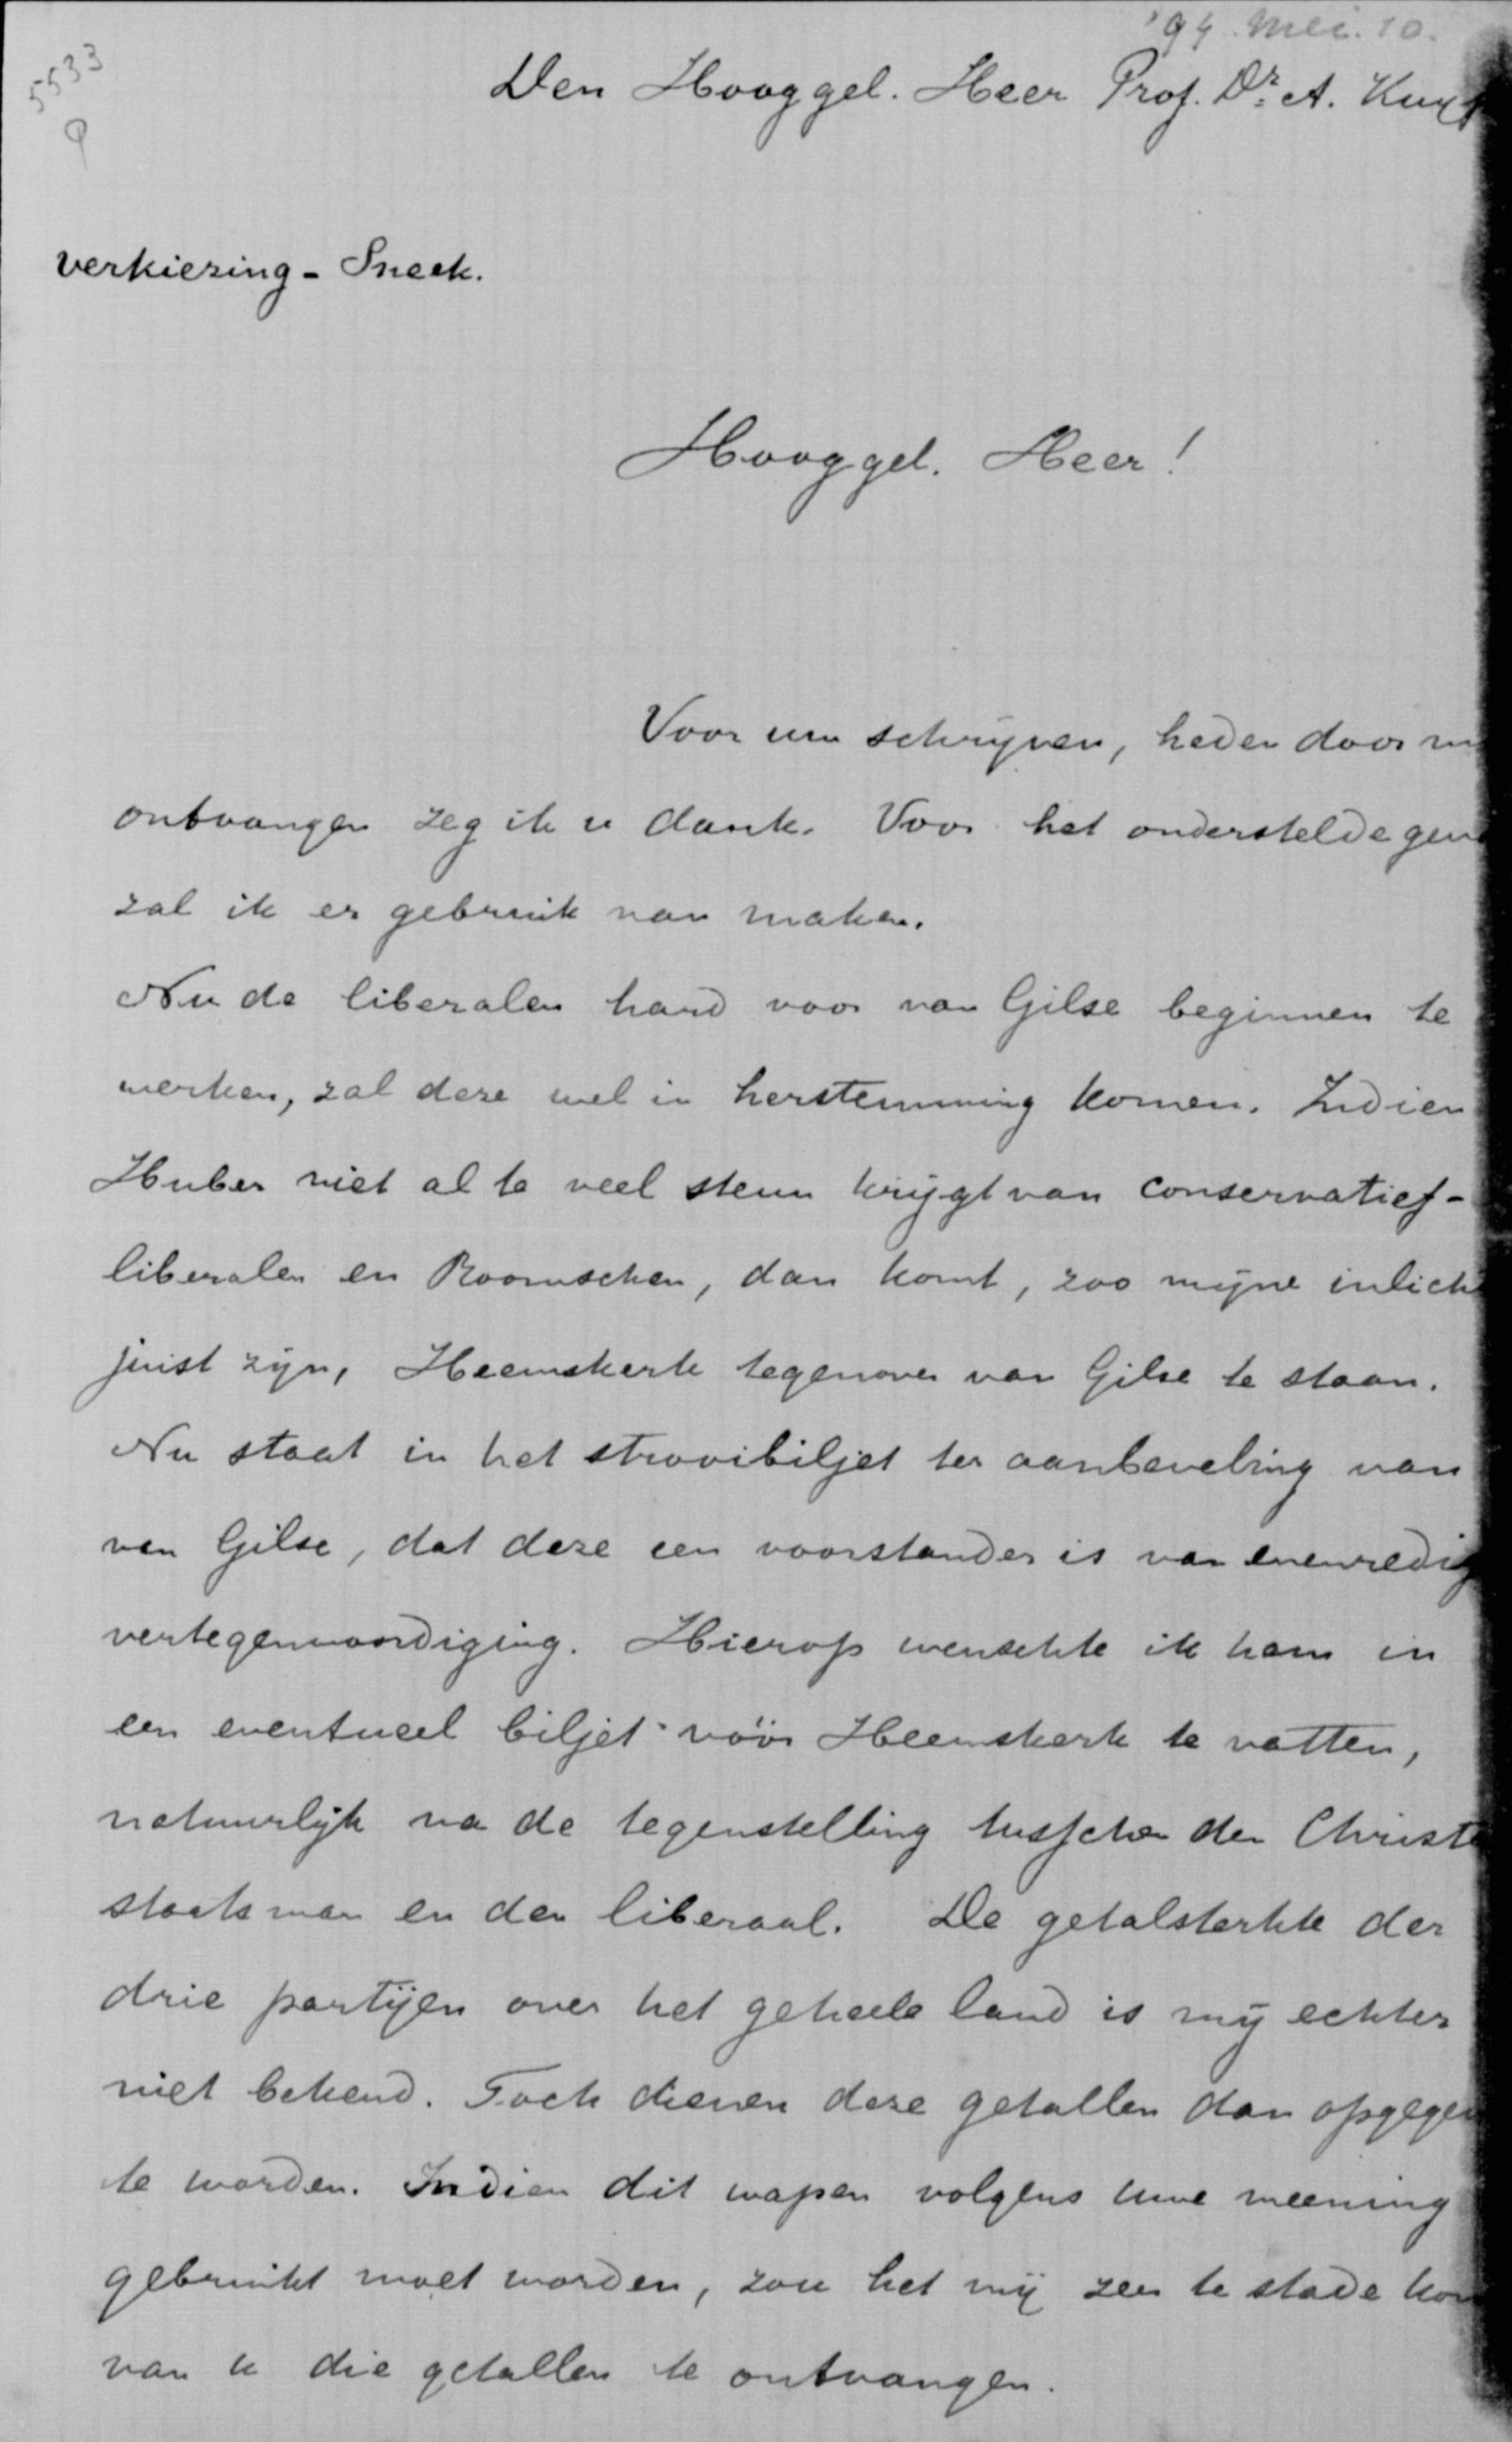 '94. Mei. 10.
5533
Den Hooggel. Heer Prof. Dr. A. Kuyp
verkiezing - Sneek.
Hooggel. Heer!
Voor uw schrijven, heden door m
ontvangen zeg ik u dank. Voor het onderstelde gev
zal ik er gebruik van maken.
Nu de liberalen hard voor van Gilse beginnen te
werken, zal deze wel in herstemming komen. Indien
Huber niet al te veel steun krijgt van conservatief-
liberalen en Roomschen, dan komt, zoo mijne inlich
juist zijn, Heemskerk tegenover van Gilse te staan.
Nu staat in het strooibiljet ter aanbeveling van
van Gilse, dat deze een voorstander is van evenredig
vertegenwoordiging. Hierop wenschte ik hem in
een eventueel biljet vóór Heemskerk te vatten,
natuurlijk na de tegenstelling tusschen den Christe
staatsman en den liberaal. De getalsterkte der
drie partijen over het geheele land is mij echter
niet bekend. Toch dienen deze getallen dan opgegev
te worden. Indien dit wapen volgens uwe meening
gebruikt moet worden, zou het mij zeer te stade kom
van u die getallen te ontvangen.